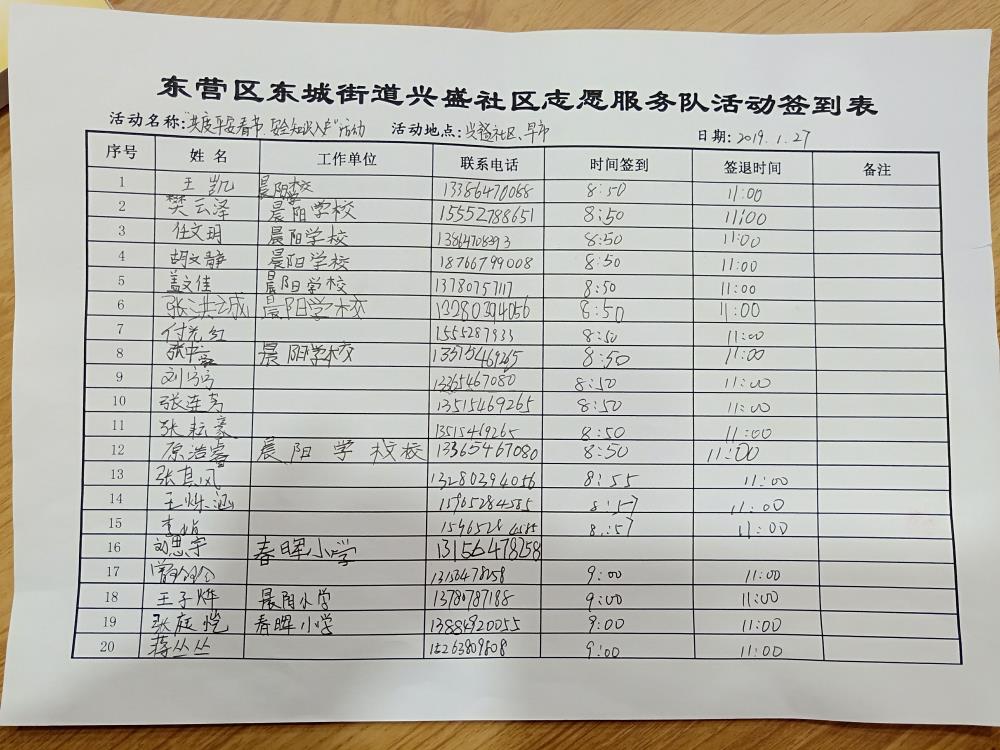 东营区东城街道兴盛社区志愿服务队活动签到表
活动名称:"共度平安春节 安全知识入户"活动 活动地点:兴盛社区、早市 日期:2019.1.27
序号 姓名 工作单位 联系电话 时间签到 签退时间 备注
1 王凯 晨阳学校 13386470088 8:50 11:00
2 樊云泽 晨阳学校 15552788651 8:50 11:00
3 任文玥 晨阳学校 13864708393 8:50 11:00
4 胡文静 晨阳学校 18766799008 8:50 11:00
5 盖文佳 晨阳学校 13780757117 8:50 11:00
6 张洪诚 晨阳学校 13280394056 8:50 11:00
7 付光红 1555287933 8:50 11:00
8 晨阳学校 13515469265 8:50 11:00
9 刘宁宁 13365467080 8:50 11:00
10 张连芳 13515469265 8:50 11:00
11 张耘豪 13515469265 8:50 11:00
12 原浩睿 晨阳学校 13365467080 8:50 11:00
13 张真风 13280394056 8:55 11:00
14 王烁涵 15965284585 8:57 11:00
15 李娟 15965284585 8:57 11:00
16 刘思宇 春晖小学 13156478258
17 13156478258 9:00 11:00
18 王子烨 晨阳小学 13780787188 9:00 11:00
19 张庭恺 春晖小学 13884920055 9:00 11:00
20 蒋丛丛 15263809808 9:00 11:00